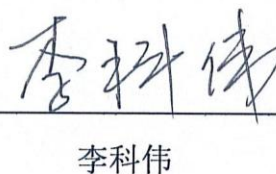 李科伟
李科伟